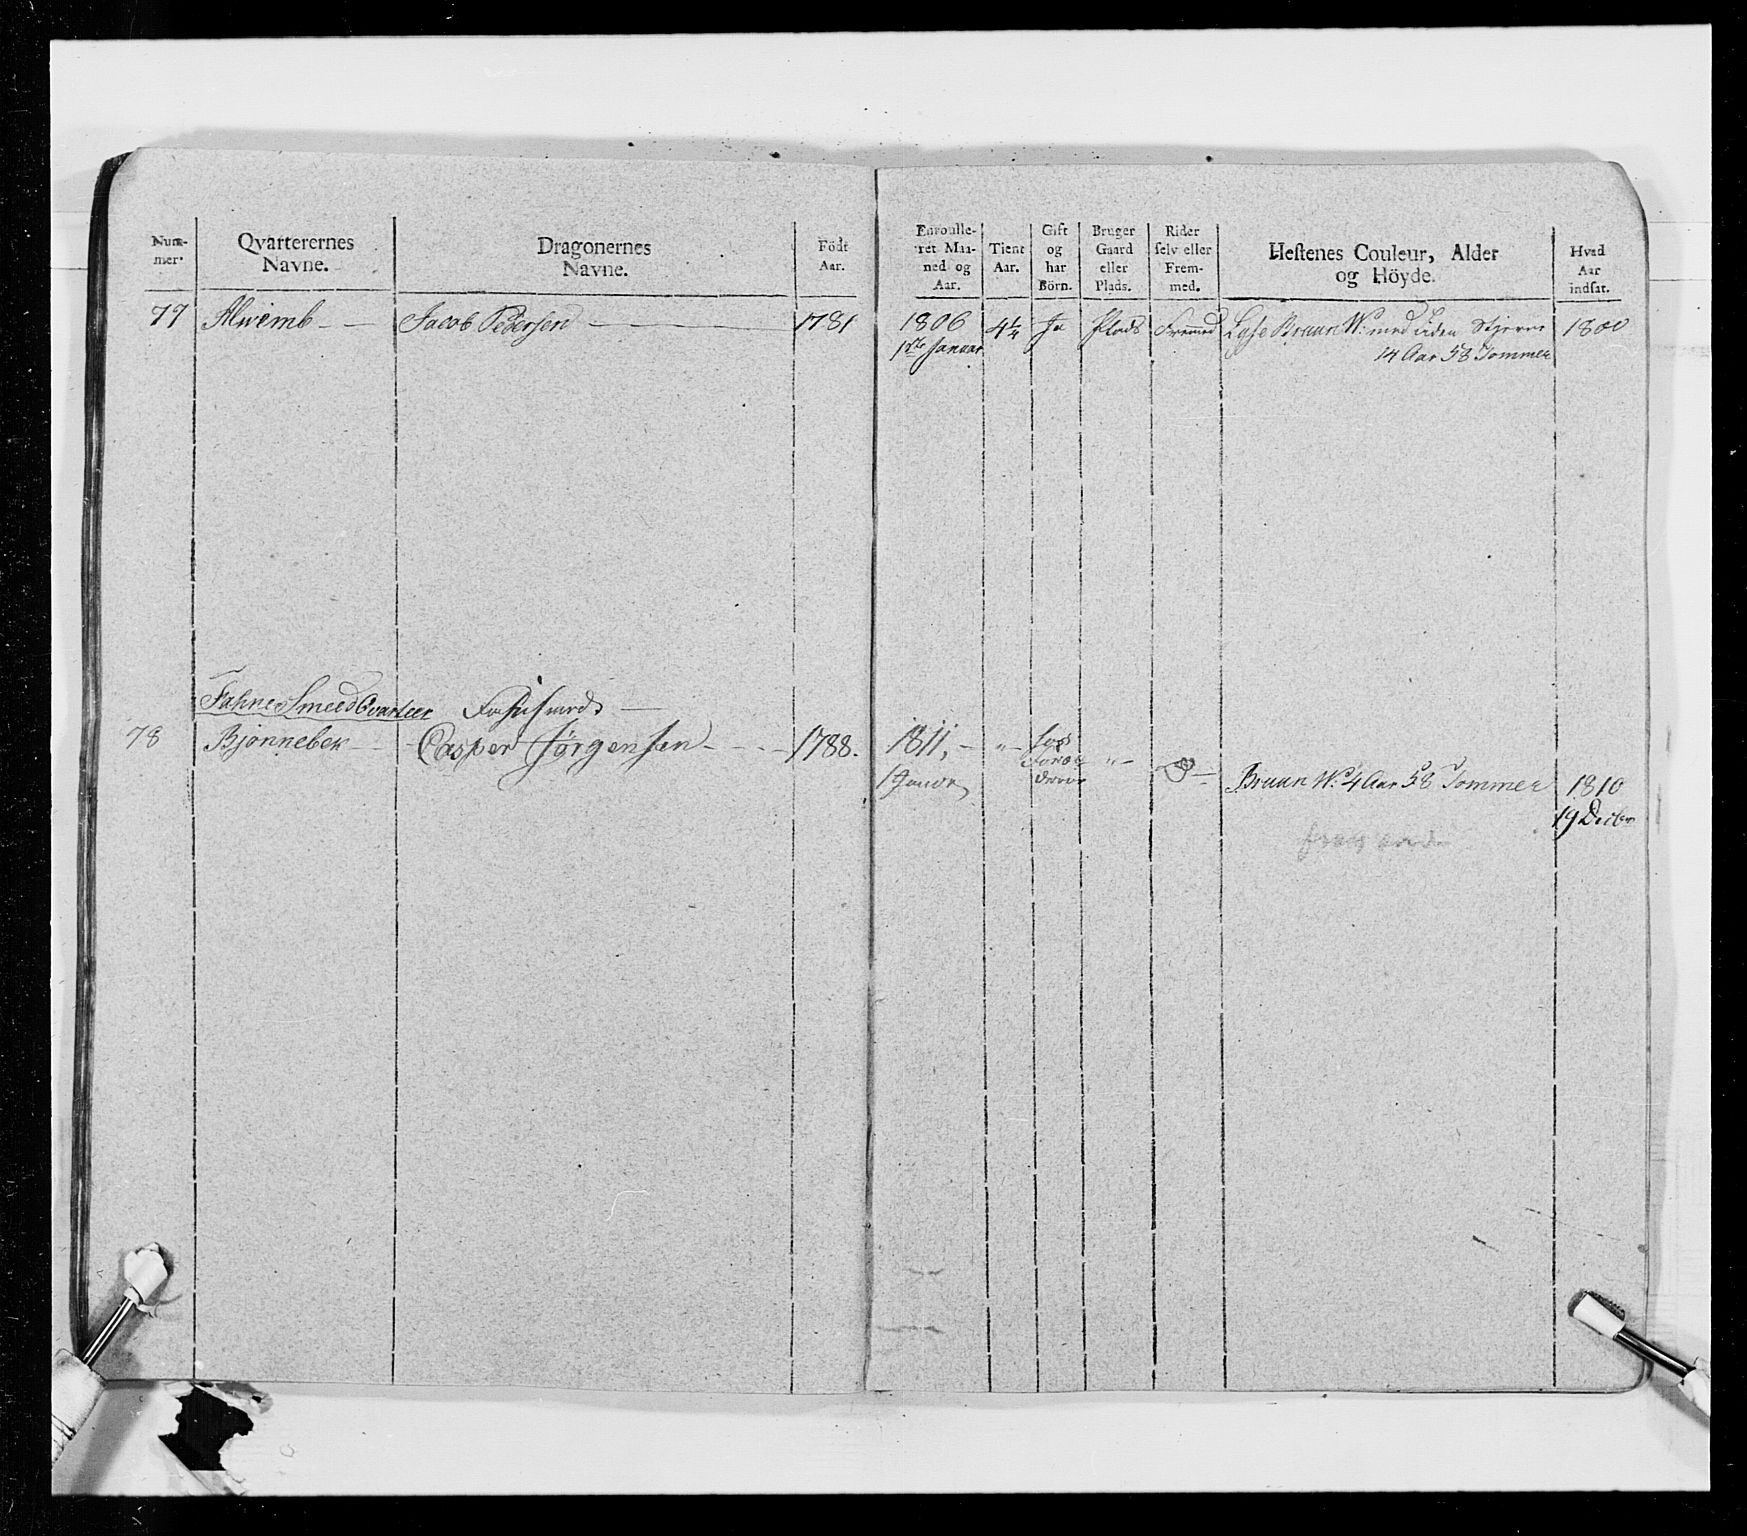 Num-
mer.
Qvarterernes
Navne.
Dragonernes
Navne.
Födt
Aar.
Enroulle-
ret Maa-
ned og
Aar.
Tient
Aar.
Gift
og
har
Börn.
Bruger
Gaard
eller
Plads.
Rider
selv eller
Frem-
med.
Hestenes Couleur, Alder
og Höyde.
Hvad
Aar
indsat.
77 Alwimb Jacob Pedersen 1781 1806 4¼ Ja Plads Fremed Lyse Bruun W: med uden Stjerne 1800
1ste Januar 14 Aar 58 Tommer
Fahne Smeed Qvarteer
78 Bjønnebek Casper Jørgensen 1788. 1811, " "
1 Janvr Bruun W: 4 Aar 58 Tommer 1810
19 Decbr